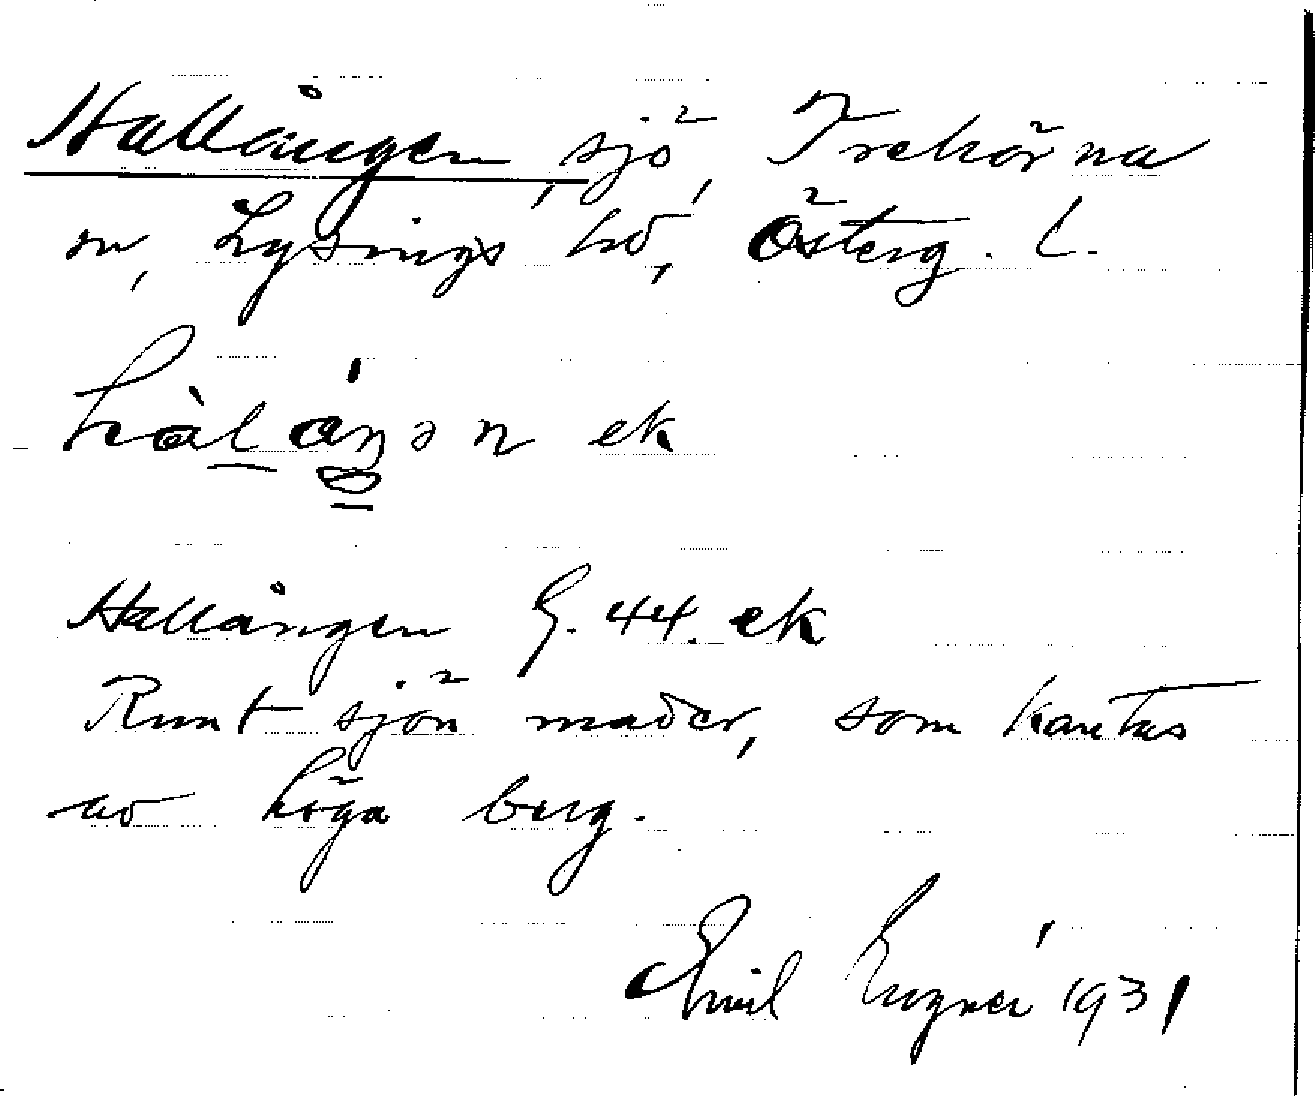 Hallången, sjö, Trehörna
sn, Lysings hd, Österg. l.
hàláŋən ek
Hallången G. 44. ek
Runt sjön mader, som kantas
av höga berg.
Emil 1931